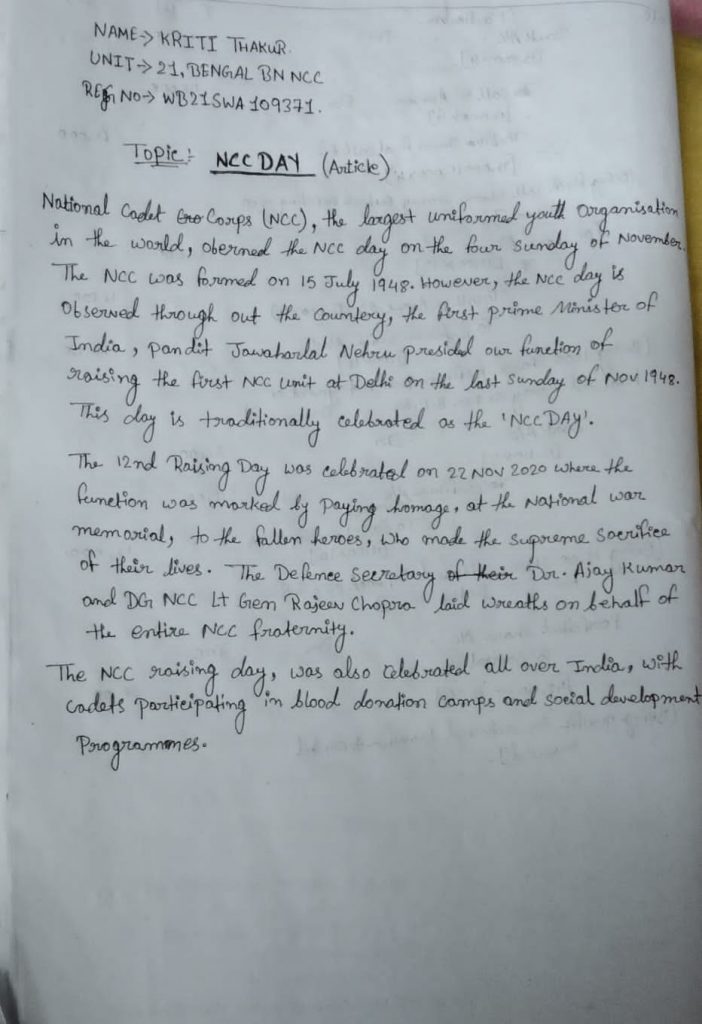 NAME→ KRITI THAKUR.
UNIT→ 21, BENGAL BN NCC
REG NO→ WB21SWA109371.
Topic:- NCC DAY (Article)
National Cadet Corps (NCC), the largest uniformed youth organisation
in the world, oberned the NCC day on the four sunday of November.
The NCC was formed on 15 July 1948. However, the NCC day is
Observed through out the Countery, the first prime Minister of
India, pandit Jawaharlal Nehru presided our function of
raising the first NCC unit at Delhi on the last Sunday of Nov 1948.
This day is traditionally celebrated as the 'NCC DAY'.
The 12nd Raising Day was celebrated on 22 NOV 2020 where the
function was marked by paying homage, at the National war
memorial, to the fallen heroes, who made the supreme sacrifice
of their lives. The Defence Secretary of their Dr. Ajay Kumar
and DG NCC Lt Gen Rajeev Chopra laid wreaths on behalf of
the entire NCC fraternity.
The NCC raising day, was also celebrated all over India, with
cadets participating in blood donation camps and social development
Programmes.